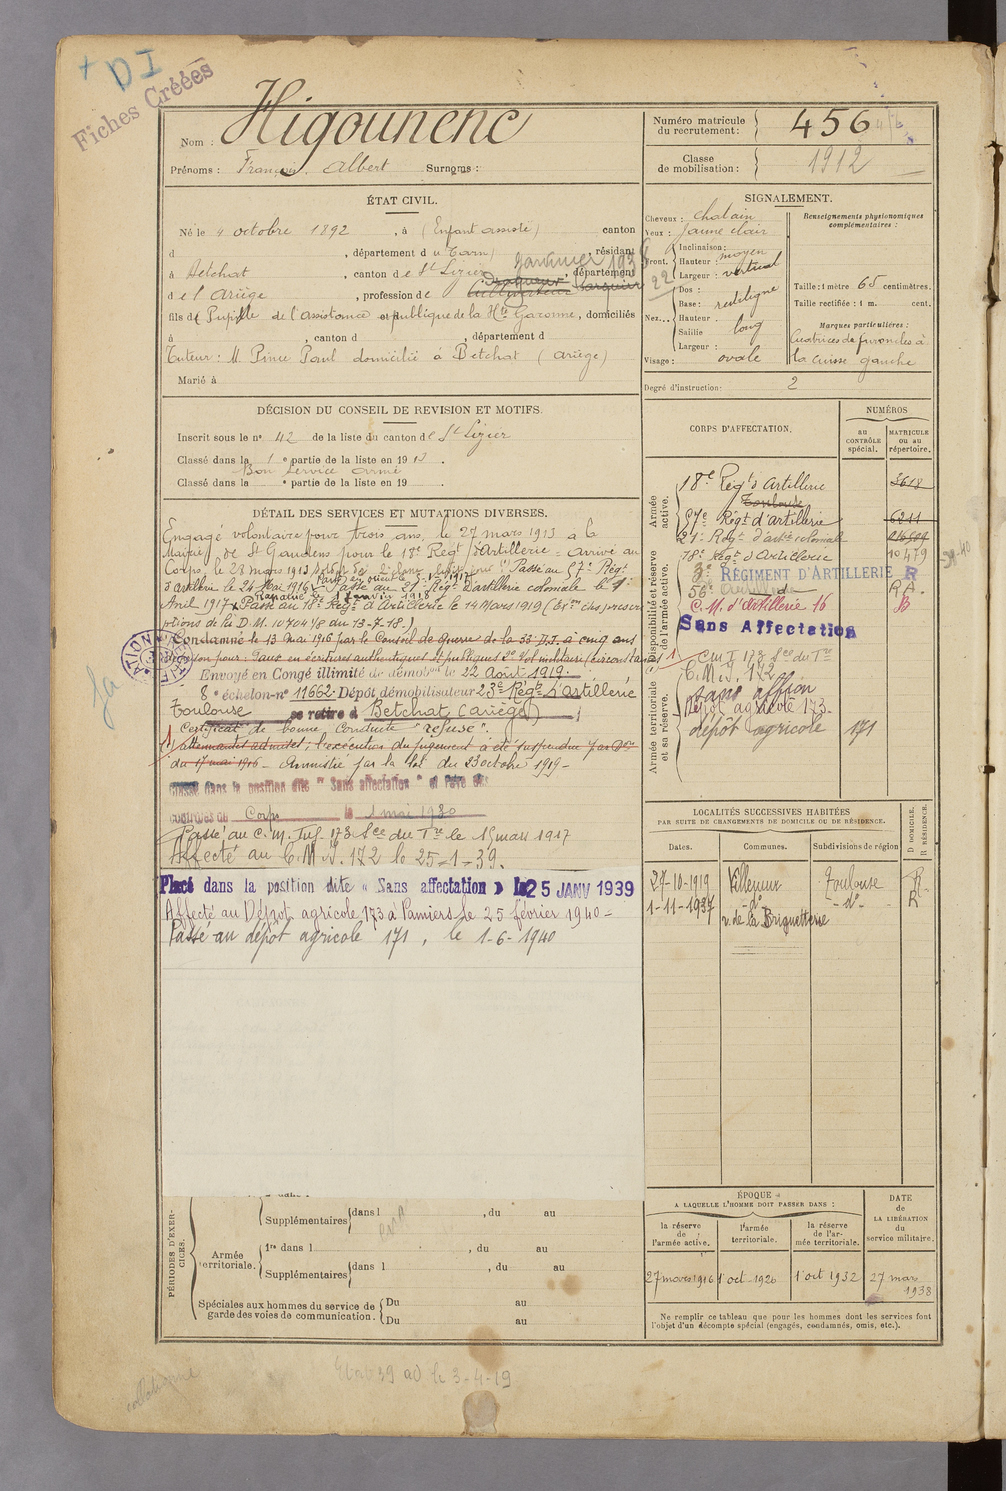 + DI
Fiches Créées
Nom : Higounenc
Prénoms : François Albert Surnoms :
Numéro matricule du recrutement : 456
Classe de mobilisation : 1912
ÉTAT CIVIL.
Né le 4 octobre 1892, à (Enfant assisté) canton
d , département du Tarn, résidant
à Betchat, canton de St Lizier, département
jardinier 1938
de l'Ariège, profession de Cultivateur
fils de Pupille de l'Assistance et publique de la Hte Garonne, domiciliés
à , canton d , département d
Tuteur : M. Pince Paul domicilié à Betchat (Ariège)
Marié à
SIGNALEMENT.
Cheveux : chatain
Yeux : jaune clair
Front. Inclinaison :
Hauteur : moyen
Largeur : vertical
Nez... Dos :
Base : rectiligne
Hauteur :
Saillie long
Largeur :
Visage : ovale
Renseignements physionomiques complémentaires :
Taille : 1 mètre 65 centimètres.
Taille rectifiée : 1 m. cent.
Marques particulières :
Cicatrices de furoncles à
la cuisse gauche
Degré d'instruction : 2
DÉCISION DU CONSEIL DE REVISION ET MOTIFS.
Inscrit sous le no 42 de la liste du canton de St Lizier
Classé dans la 1e partie de la liste en 1913.
Bon service armé
Classé dans la e partie de la liste en 19 .
CORPS D'AFFECTATION.
NUMÉROS
au CONTRÔLE spécial.
MATRICULE ou au répertoire.
Armée active.
18e Régt d'Artillerie 3618
Toulouse
57e Régt d'artillerie 6211
21e Régt d'artie coloniale
Disponibilité et réserve de l'armée active.
18e Régt d'Artillerie 10479
3e RÉGIMENT D'ARTILLERIE R
56e R.A.
C. M. d'artillerie 16
Sans Affectation
Armée territoriale et sa réserve.
C M I 173 Sce du Tre
C. M. I. 172
Sans affion
Dépôt agricole 173
dépôt agricole 171
DÉTAIL DES SERVICES ET MUTATIONS DIVERSES.
Engagé volontaire pour trois ans, le 27 mars 1913 à la
Mairie de St Gaudens pour le 18e Régt d'Artillerie = arrivé au
Corps, le 28 mars 1913 Passé au 57e Régt
d'artillerie le 24 Mai 1916 Passé au 21e Régt d'artillerie coloniale le 1er
Avril 1917 Passé au 18e Régt d'Artillerie le 14 Mars 1919
ptions de la D.M. 10704 1/8 du 13-7-18.)
Condamné le 13 mai 1916 par le Conseil de Guerre de la 33e D.I. à cinq ans
Envoyé en Congé illimité de démobon le 22 Août 1919.
8e échelon no 11662. Dépôt démobilisateur 23e Régt d'Artillerie
Toulouse se retire à Betchat (ariège)
Certificat de bonne Conduite "refusé".
l'exécution du jugement a été suspendue par Don
du 17 mai 1916 - Amnistié par la loi du 23 octobre 1919 -
Classé dans la position dite "Sans affectation" et rayé des
contrôles du Corps le 1 mai 1930
Passé au C. M. Inf. 173 Sce du Tre le 15 mars 1917
Affecté au C. M. I. 172 le 25-1-39.
Placé dans la position dite « Sans affectation » le 25 JANV 1939
Affecté au Dépôt agricole 173 à Pamiers le 25 février 1940 =
Passé au dépôt agricole 171, le 1-6-1940
LOCALITÉS SUCCESSIVES HABITÉES
PAR SUITE DE CHANGEMENTS DE DOMICILE OU DE RÉSIDENCE.
Dates. Communes. Subdivisions de région D DOMICILE. R RÉSIDENCE.
27-10-1919 Villemur Toulouse R
1-11-1937 - do - - do - R
r. de la Briquetterie
PÉRIODES D'EXERCICES.
Supplémentaires dans l , du au
Armée territoriale.
1re dans l , du au
Supplémentaires dans l , du au
Spéciales aux hommes du service de garde des voies de communication.
Du au
Du au
ÉPOQUE
A LAQUELLE L'HOMME DOIT PASSER DANS :
la réserve de l'armée active.
l'armée territoriale.
la réserve de l'armée territoriale.
DATE de LA LIBÉRATION du service militaire.
27 mars 1916 1 oct 1926 1 oct 1932 27 mars 1938
Ne remplir ce tableau que pour les hommes dont les services font
l'objet d'un décompte spécial (engagés, condamnés, omis, etc.).
collationné